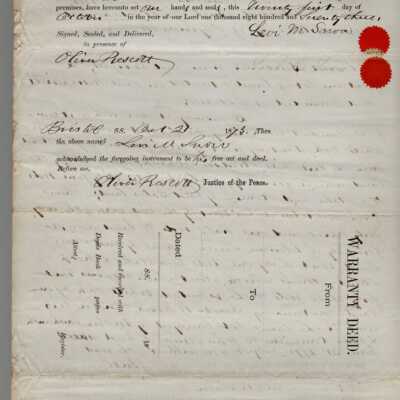 premises, have hereunto set our hands and seals, this Twenty first day of
in the year of our Lord one thousand eight hundred and Seventy three.
Signed, Sealed, and Delivered, Levi M. Snow
in presence of
Oliver Prescott
Bristol SS. 21 1873. Then
the above named Levi M. Snow
acknowledged the foregoing instrument to be his free act and deed.
Before me,
Oliver Prescott Justice of the Peace.
WARRANTY DEED.
From
To
Dated
SS. 18
Received and Recorded with
Deeds Book pages
Attest,
Register.